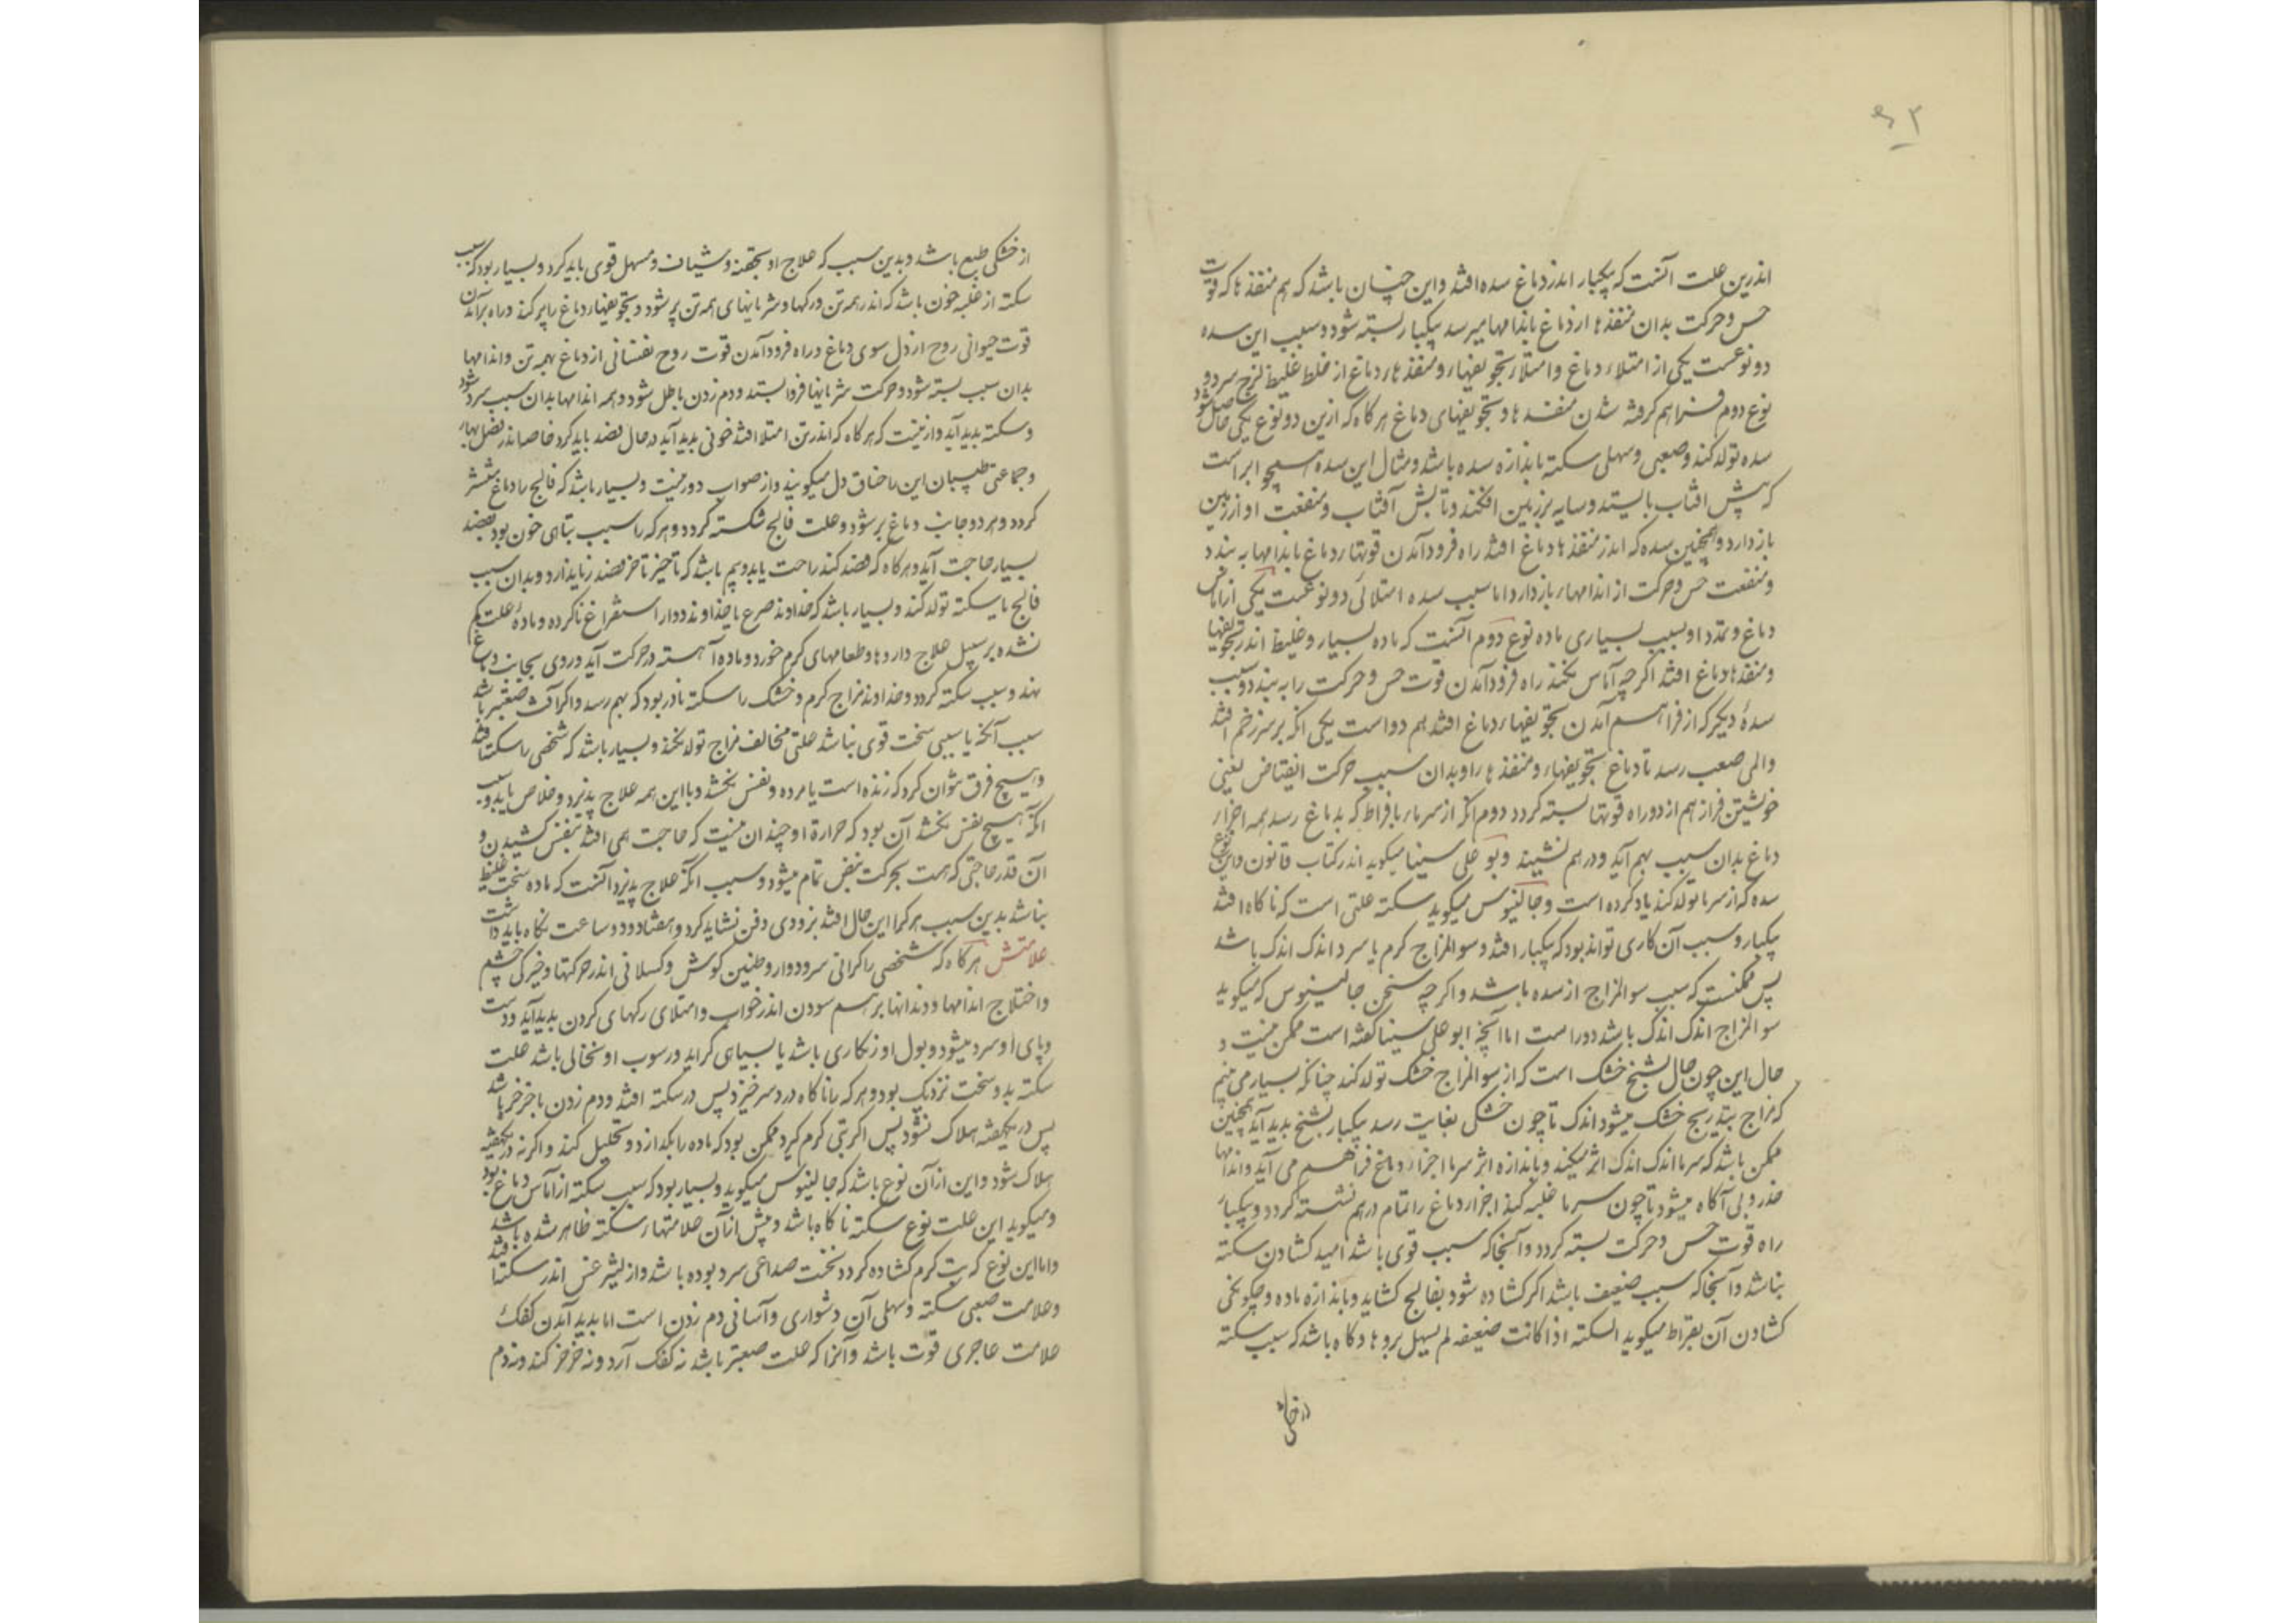 اندرین علت آنست که یکبار اندر دماغ سده افتد و این چنان باشد که هم منفذها که قوت
حس و حرکت بدان منفذها از دماغ باندامها میرسد یکبار بسته شود و سبب این سده
دو نوعست یکی از امتلاء دماغ و امتلاء تجویفهاء و منفذهاء دماغ از خلط غلیظ لزج سرد و
نوع دوم فراهم کرفته شدن منفذها و تجویفهای دماغ هرکاه که ازین دو نوع یکی حاصل شود
سده تولد کند و صعبی و سهلی سکته باندازه سده باشد و مثال این سده همچو ابر است
که پیش افتاب بایستد و سایه بر زمین افکند و تابش آفتاب و منفعت او از زمین
باز دارد و همچنین سده که اندر منفذها دماغ افتد راه فرود آمدن قوتهاء دماغ باندامها به بندد
و منفعت حس و حرکت از اندامهاء باز دارد اما سبب سده امتلائی دو نوعست یکی از اماس
دماغ و تمدد او بسبب بسیاری ماده نوع دوم آنست که ماده بسیار و غلیظ اندر تجویفها
و منفذها دماغ افتد اکرچه آماس نکند راه فرود آمدن قوت حس و حرکت را به بندد و سبب
سدهٔ دیکر که از فراهم آمدن تجویفهاء دماغ افتد هم دو است یکی انکه بر سر زخم افتد
والمی صعب رسد تا دماغ تجویفهاء و منفذها را و بدان سبب حرکت انقباض یعنی
خویشتن فراز هم ازد و راه قوتها بسته کردد دوم انکه از سرماء بافراط که بدماغ رسد همه اجزاء
دماغ بدان سبب بهم آید و درهم نشیند و بو علی سینا میکوید اندر کتاب قانون و این نوع
سده که از سرما تولد کند یاد کرده است و جالینوس میکوید سکته علتی است که ناکاه افتد
یکبار و سبب آن کاری تواند بود که یکبار افتد و سوالمزاج کرم یا سرد اندک اندک باشد
پس ممکنست که سبب سوالمزاج از سده باشد و اکرچه سخن جالینوس که میکوید
سوالمزاج اندک اندک باشد دور است اما آنچه ابو علی سینا کفته است ممکن نیست و
حال این چون حال تشنج خشک است که از سوالمزاج خشک تولد کند چنانکه بسیار می بینم
که مزاج بتدریج خشک میشود اندک تا چون خشکی بغایت رسد یکبار تشنج بدید آید همچنین
ممکن باشد که سرما اندک اندک اثر میکند و باندازه اثر سرما اجزاء دماغ فراهم می آید و اندامها
خدر و بی آکاه میشود تا چون سرما غلبه کند اجزاء دماغ را تمام درهم نشسته کردد و یکبار
راه قوت حس و حرکت بسته کردد و آنجا که سبب قوی باشد امید کشادن سکته
نباشد و آنجا که سبب ضعیف باشد اکر کشاده شود بفالج کشاید و باندازه ماده و چکونکی
کشادن آن بقراط میکوید السکته اذا کانت ضعیفه لم یسهل بروها و کاه باشد که سبب سکته
از خشکی
از خشکی طبع باشد و بدین سبب که علاج او بحقنه و شیاف و مسهل قوی باید کرد و بسیار بود که سبب
سکته از غلبه خون باشد که اندر همه تن و رکها و شریانهای همه تن پر شود و تجویفهاء دماغ را پر کند و راه برآمدن
قوت حیوانی روح از دل سوی دماغ و راه فرود آمدن قوت روح نفسانی از دماغ بهمه تن و اندامها
بدان سبب بسته شود و حرکت شریانها فرو ایستد و دم زدن باطل شود و همه اندامها بدان سبب سرد شود
و سکته بدید آید و ازینست که هرکاه که اندر تن امتلا افتد خونی بدید آید در حال فصد باید کرد خاصه اندر فصل بهار
و جماعتی طبیبان این را خناق دل میکویند و از صواب دور نیست و بسیار باشد که فالج را دماغ منتشر
کردد و هر دو جانب دماغ پر شود و علت فالج سکته کردد و هر که را سبب تباهی خون بود بفصد
بسیار حاجت آید و هرکاه که فصد کند راحت یابد و بیم باشد که تاخیر تا خر فصد زیان دارد و بدان سبب
فالج یا سکته تولد کند و بسیار باشد که خداوند صرع یا خداوند دوار استفراغ ناکرده و مادهٔ علت کم
نشده بر سبیل علاج داروها و طعامهای کرم خورد و ماده آهسته در حرکت آید و روی بجانب دماغ
نهد و سبب سکته کردد و خداوند مزاج کرم و خشک را سکته نادر بود که بهم رسد و اکر آفت صعبتر باشد
سبب آنکه یا سببی سخت قوی نباشد علتی مخالف مزاج تولد نکند و بسیار باشد که شخصی را سکته افتد
و هیچ فرق نتوان کرد که زنده است یا مرده و نفس نکشد و با این همه علاج پذیرد و خلاص یابد و سبب
انکه هیچ نفس نکشد آن بود که حرارة او چندان نیست که حاجت همی افتد بنفس کشیدن و
آن قدر حاجتی که هست بحرکت نبض تمام میشود و سبب انکه علاج پذیرد آنست که ماده سخت غلیظ
نباشد بدین سبب هرکرا این حال افتد بزودی دفن نشاید کرد و هفتاد و دو ساعت نکاه باید داشت
علامتش هرکاه که شخصی را کرانی سر و دوار و طنین کوش و کسلانی اندر حرکتها و خیرکی چشم
و اختلاج اندامها و دندانها برهم سودن اندر خواب و امتلای رکهای کردن بدید آید و دست
و پای او سرد میشود و بول او زنکاری باشد یا بسیاهی کراید و رسوب او نخالی باشد علت
سکته بدو سخت نزدیک بود و هرکه را ناکاه درد سر خیزد پس در سکته افتد و دم زدن با خرخر باشد
پس در یکهفته هلاک نشود پس اکر تبی کرم کیرد ممکن بود که ماده را بکدازد و تحلیل کند و اکر نه در یکهفته
هلاک شود و این از آن نوع باشد که جالینوس میکوید و بسیار بود که سبب سکته از آماس دماغ بود
و میکوید این علت نوع سکته ناکاه باشد و پیش از آن علامتهاء سکته ظاهر شده باشد
و اما این نوع که بتب کرم کشاده کردد نخست صداعی سرد بوده باشد و از لیثرغس اندر سکته افتد
و علامت صعبی سکته و سهلی آن دشواری و آسانی دم زدن است اما بدید آمدن کفک
علامت عاجزی قوت باشد و آنرا که علت صعبتر باشد نه کفک آرد و نه خرخر کند و نه دم